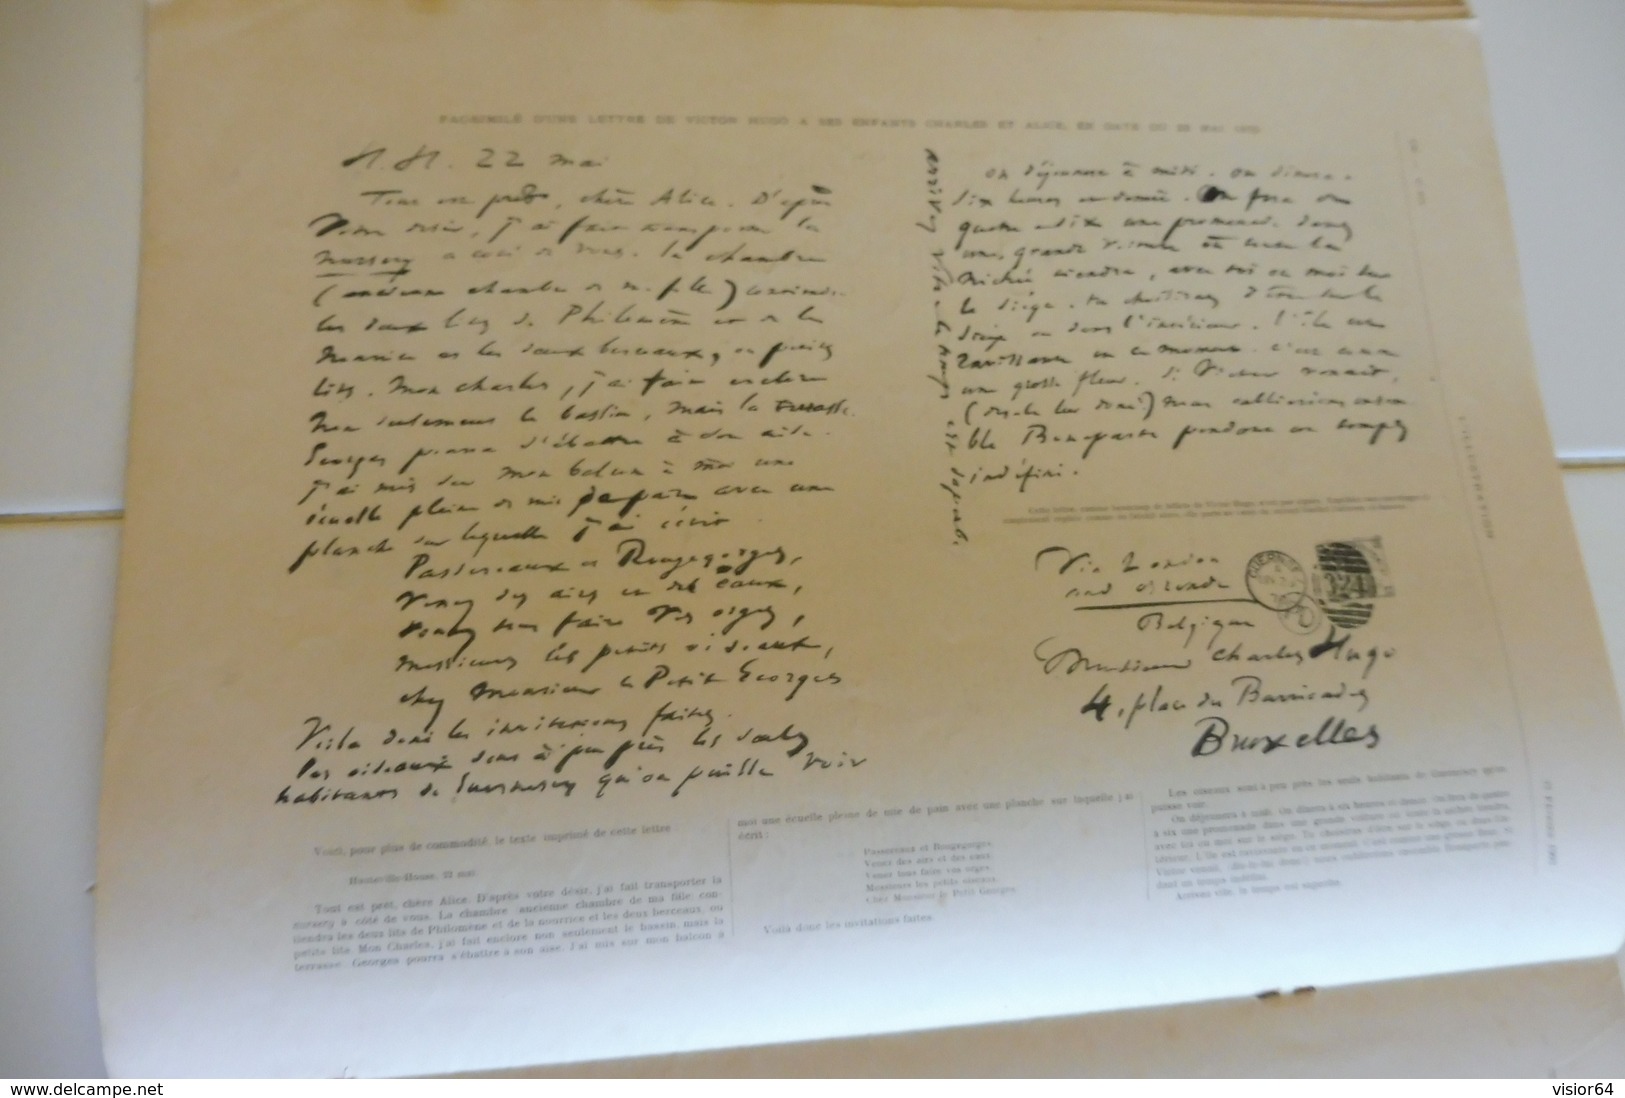 FACSIMILÉ D'UNE LETTRE DE VICTOR HUGO A SES ENFANTS CHARLES ET ALICE, EN DATE DU 22 MAI
H. H. 22 mai
Tout est prêt, chère Alice. D'après
votre désir, j'ai fait transporter la
nursery à côté de vous. La chambre
(ancienne chambre de m. fille) contiendra
les deux lits de Philomène et de la
nourrice et les deux berceaux, ou petits
lits. Mon Charles, j'ai fait enclore
non seulement le bassin, mais la terrasse.
Georges pourra s'ébattre à son aise.
J'ai mis sur mon balcon à moi une
écuelle pleine de mie de pain avec une
planche sur laquelle j'ai écrit
Passereaux et Rougegorges,
Venez des airs et des eaux,
Venez tous faire vos orges,
Messieurs les petits oiseaux,
chez Monsieur le Petit Georges
Voilà donc les invitations faites.
Les oiseaux sont à peu près les seuls
habitants de Guernesey qu'on puisse voir
on déjeunera à midi. on dînera à
six heures et demie. On fera de
quatre à six une promenade dans
une grande voiture où toute la
nichée tiendra, avec toi ou moi sur
le siège. tu choisiras d'être sur le
siège ou dans l'intérieur. l'île est
ravissante en ce moment. c'est comme
une grosse fleur. Si Victor venait,
(dis-le lui donc) nous oublierions ensem-
ble Bonaparte pendant un temps
indéfini.
arrivez vite, le temps est superbe.
Via London
and Ostende
GUERNSEY
324
Belgique
Monsieur Charles Hugo
4, place des Barricades
Bruxelles
L'ILLUSTRATION
Voici, pour plus de commodité, le texte imprimé de cette lettre
Hauteville-House, 22 mai.
Tout est prêt, chère Alice. D'après votre désir, j'ai fait transporter la
nursery à côté de vous. La chambre (ancienne chambre de ma fille) con-
tiendra les deux lits de Philomène et de la nourrice et les deux berceaux, ou
petits lits. Mon Charles, j'ai fait enclore non seulement le bassin, mais la
terrasse. Georges pourra s'ébattre à son aise. J'ai mis sur mon balcon à
moi une écuelle pleine de mie de pain avec une planche sur laquelle j'ai
écrit :
Passereaux et Rougegorges,
Venez des airs et des eaux,
Venez tous faire vos orges,
Messieurs les petits oiseaux,
Chez Monsieur le Petit Georges.
Voilà donc les invitations faites.
Les oiseaux sont à peu près les seuls habitants de Guernesey qu'on
puisse voir.
On déjeunera à midi. On dînera à six heures et demie. On fera de quatre
à six une promenade dans une grande voiture où toute la nichée tiendra,
avec toi ou moi sur le siège. Tu choisiras d'être sur le siège ou dans l'in-
térieur. L'île est ravissante en ce moment. C'est comme une grosse fleur. Si
Victor venait, (dis-le lui donc) nous oublierions ensemble Bonaparte pen-
dant un temps indéfini.
Arrivez vite, le temps est superbe.
www.delcampe.net
visior64